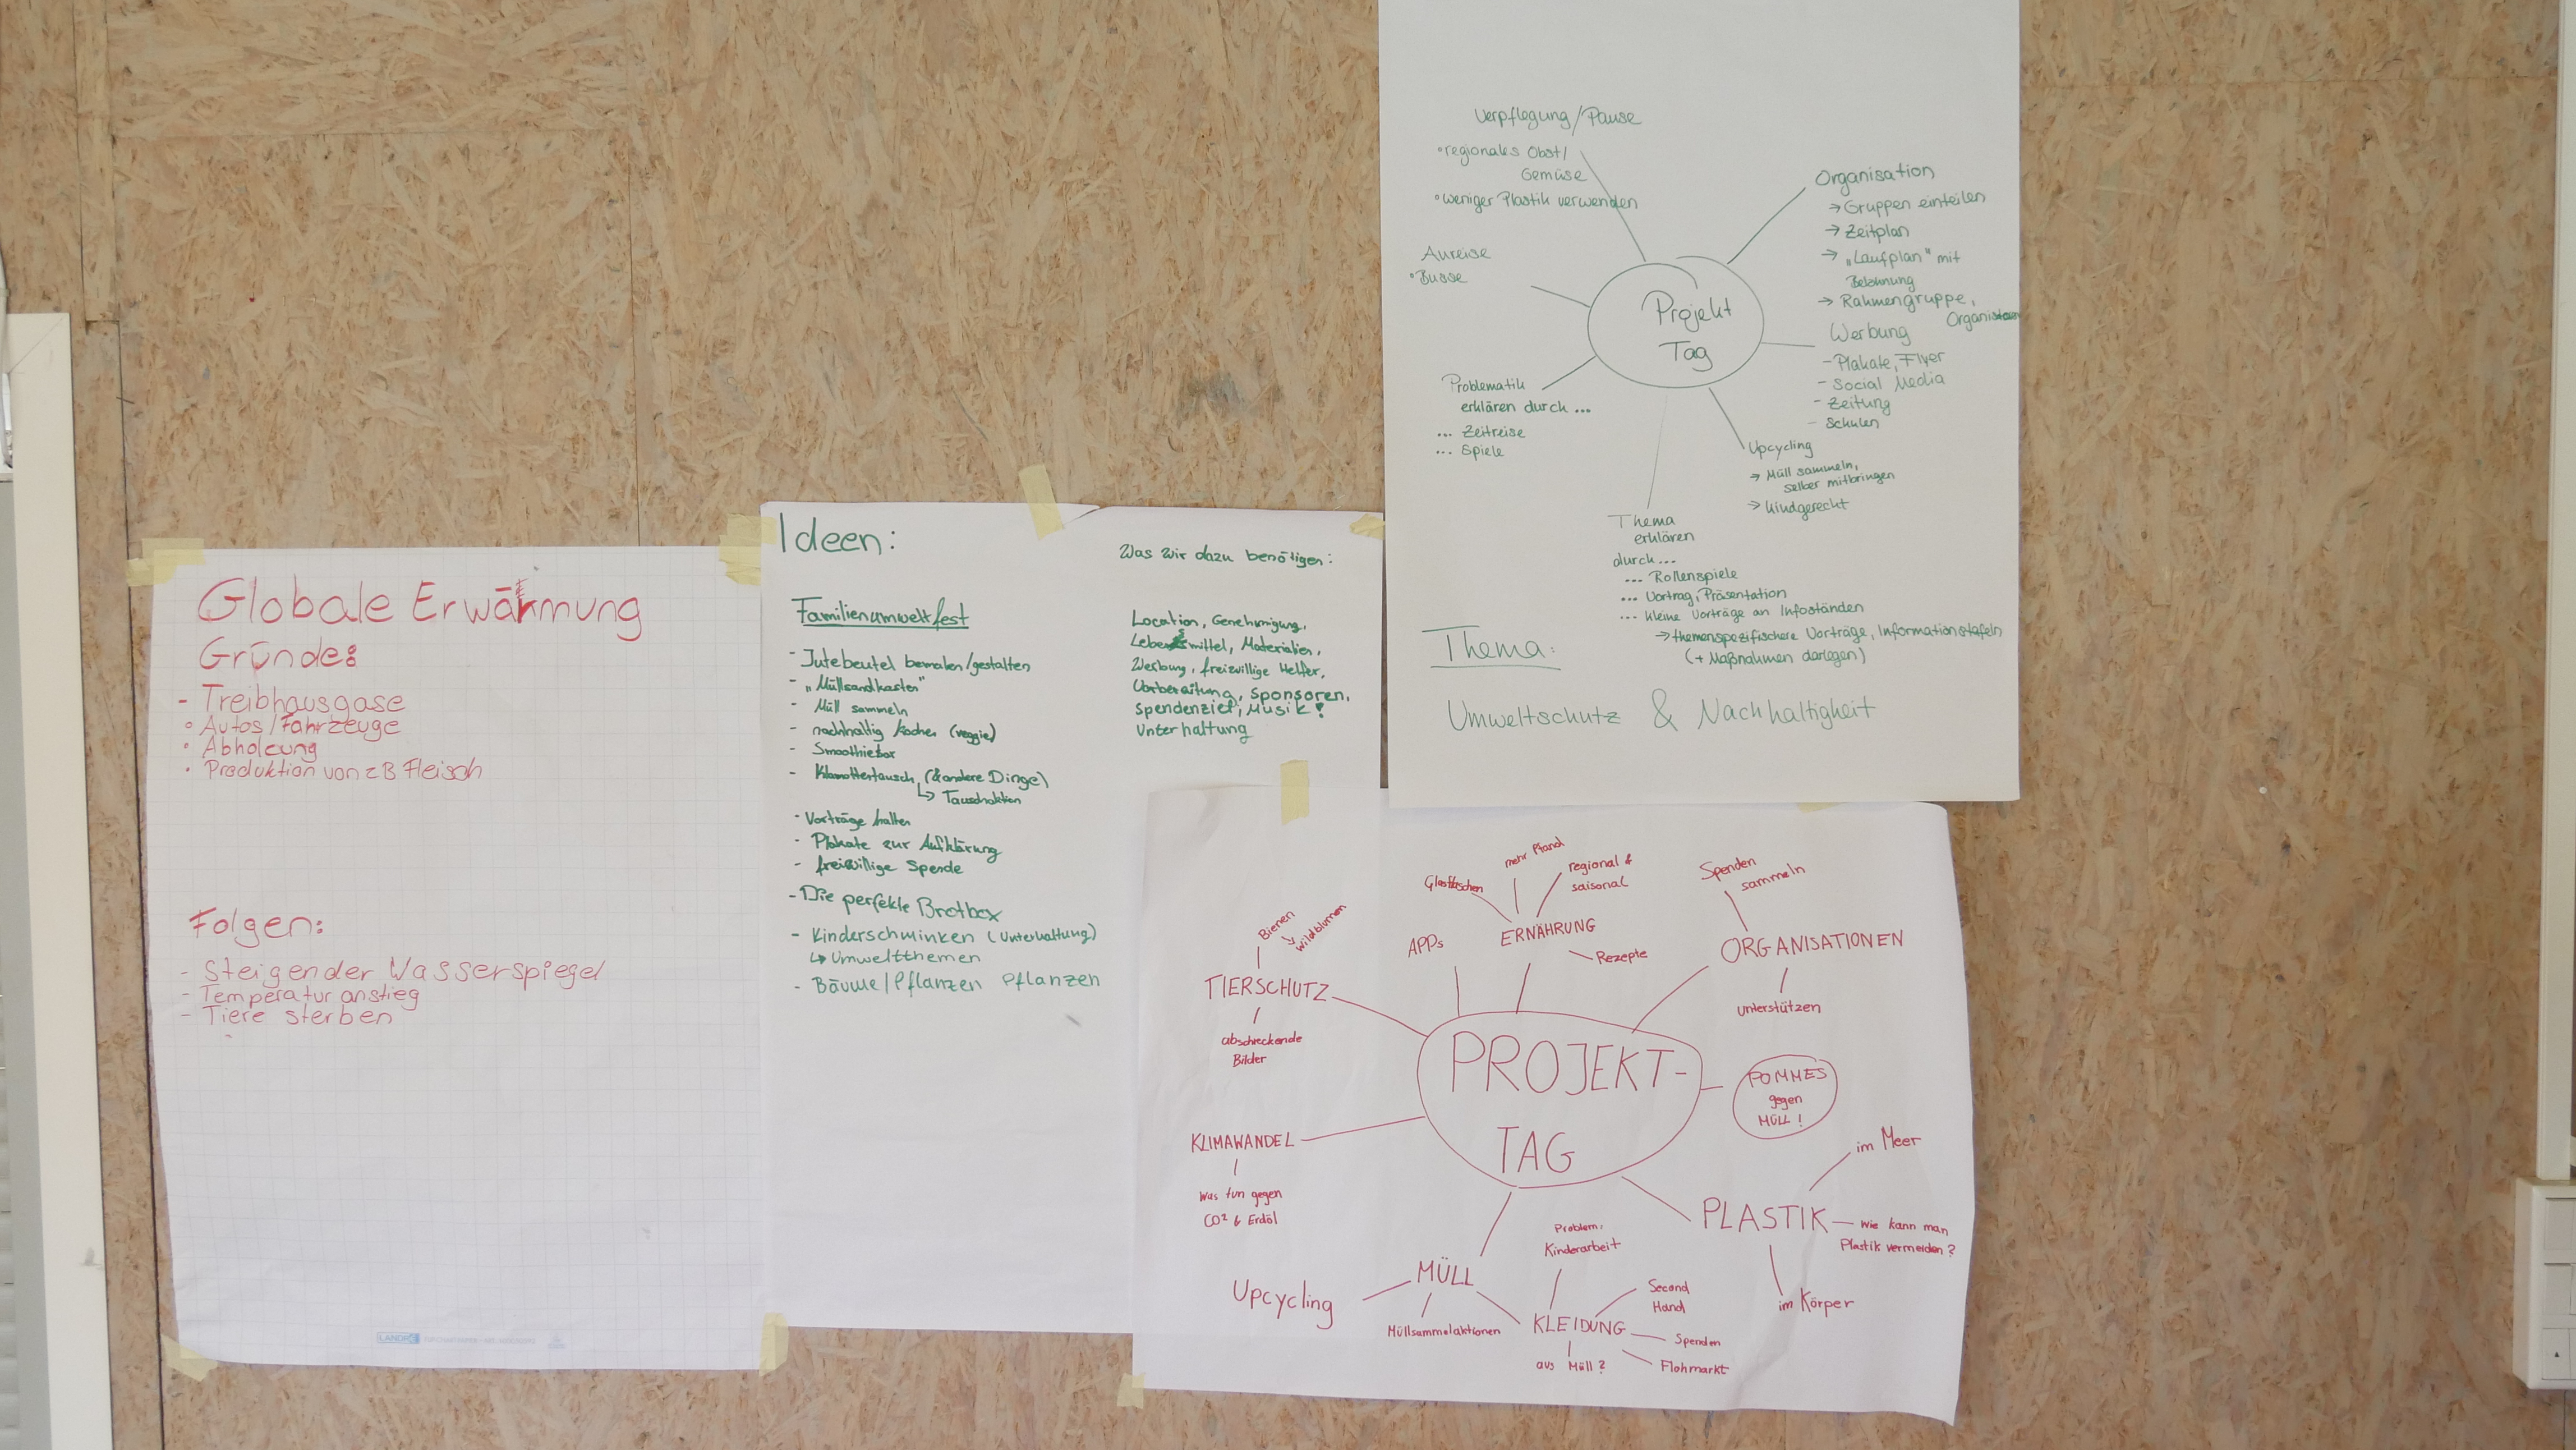 Globale Erwärmung
Gründe:
- Treibhausgase
° Autos/Fahrzeuge
• Abholzung
• Produktion von zB Fleisch
Folgen:
- Steigender Wasserspiegel
- Temperaturanstieg
- Tiere sterben
-
LANDRÉ
Ideen:
Familienumweltfest
- Jutebeutel bemalen/gestalten
- „Müllsandkasten"
- Müll sammeln
- nachhaltig kochen (veggie)
- Smoothiebar
- Klamottentausch (& andere Dinge)
↳ Tauschaktion
- Vorträge halten
- Plakate zur Aufklärung
- freiwillige Spende
- Die perfekte Brotbox
- Kinderschminken (Unterhaltung)
↳ Umweltthemen
- Bäume/Pflanzen pflanzen
Was wir dazu benötigen:
Location, Genehmigung,
Lebensmittel, Materialien,
Werbung, freiwillige Helfer,
Vorbereitung, Sponsoren,
Spendenziel, Musik!
Unterhaltung
Projekt
Tag
Verpflegung/Pause
° regionales Obst/
Gemüse
° weniger Plastik verwenden
Anreise
° Busse
Problematik
erklären durch ...
... Zeitreise
... Spiele
Organisation
→ Gruppen einteilen
→ Zeitplan
→ „Laufplan" mit
Belohnung
→ Rahmengruppe,
Werbung
- Plakate, Flyer
- Social Media
- Zeitung
- Schulen
Upcycling
→ Müll sammeln,
selber mitbringen
→ kindgerecht
Thema
erklären
durch ...
... Rollenspiele
... Vortrag, Präsentation
... kleine Vorträge an Infoständen
→ themenspezifischere Vorträge, Informationstafeln
(+ Maßnahmen darlegen)
Thema:
Umweltschutz & Nachhaltigkeit
PROJEKT-
TAG
TIERSCHUTZ
Bienen
↳ Wildblumen
abschreckende
Bilder
APPs
ERNÄHRUNG
Glasflaschen
mehr Pfand
regional &
saisonal
Rezepte
ORGANISATIONEN
Spenden
sammeln
unterstützen
POMMES
gegen
MÜLL!
PLASTIK
im Meer
wie kann man
Plastik vermeiden?
im Körper
KLIMAWANDEL
Was tun gegen
CO² & Erdöl
MÜLL
Upcycling
Müllsammelaktionen
KLEIDUNG
Problem:
Kinderarbeit
Second
Hand
Spenden
Flohmarkt
aus Müll?